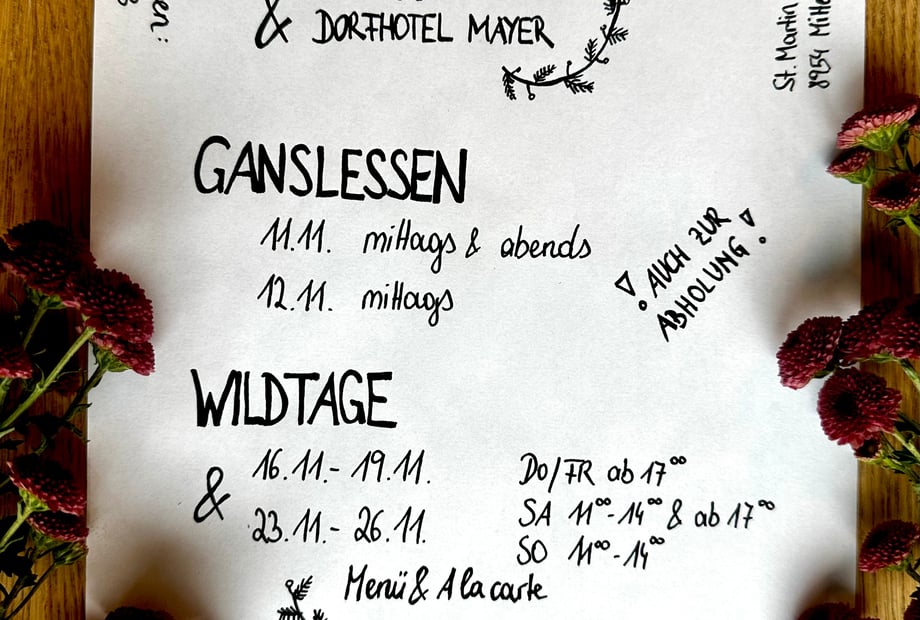 & DORFHOTEL MAYER
St. Martin
8954
GANSLESSEN
11.11. mittags & abends
12.11. mittags
! AUCH ZUR
ABHOLUNG !
WILDTAGE
16.11.- 19.11.
& 23.11.- 26.11.
DO/FR ab 17⁰⁰
SA 11⁰⁰-14⁰⁰ & ab 17⁰⁰
SO 11⁰⁰-14⁰⁰
Menü & A la carte